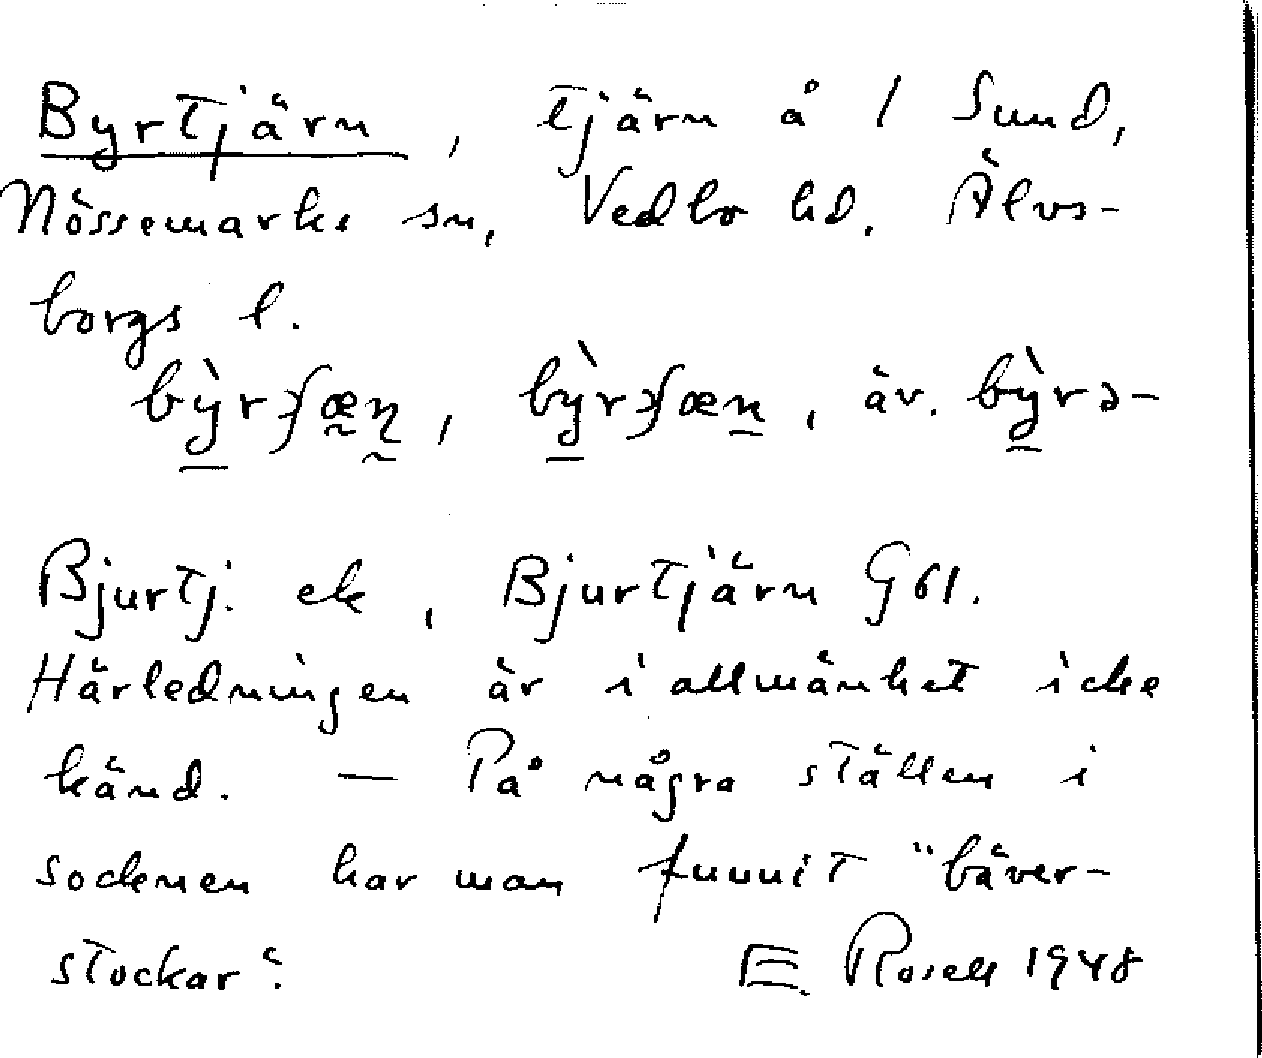 Byrtjärn, tjärn å 1 Sund,
Nössemarks sn, Vedbo hd. Älvs-
borgs l.
bỳ̠rʃæn, bỳ̠rʃæn, äv. bỳ̠rə-
Bjurtj. ek, Bjurtjärn G61.
Härledningen är i allmänhet icke
känd. — På några ställen i
socknen har man funnit "bäver-
stockar".   E. Rosell 1948